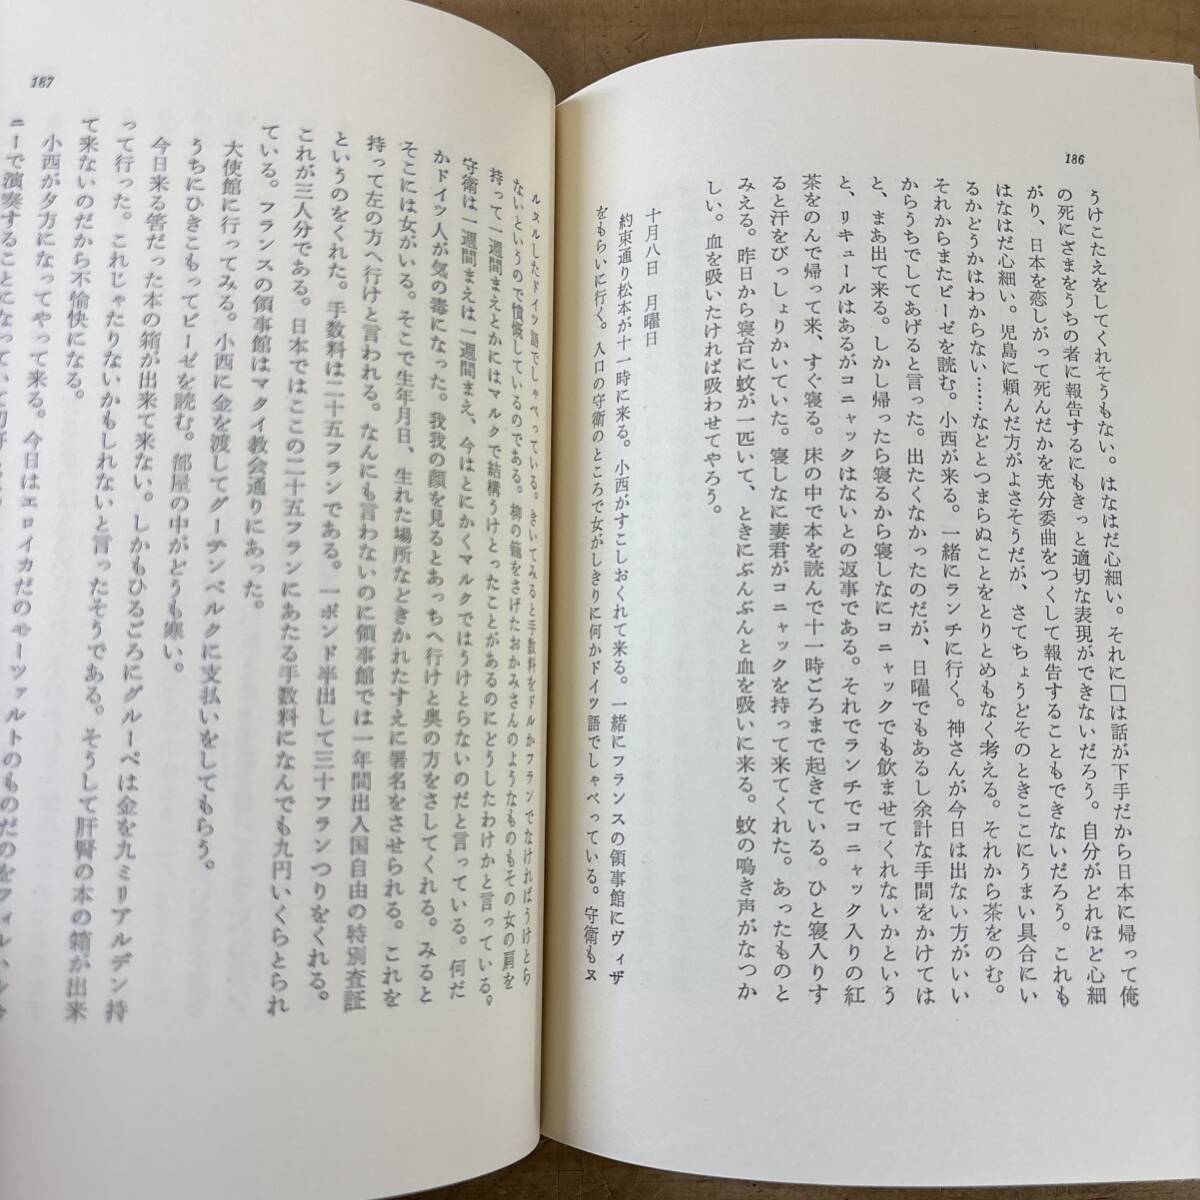 186
うけこたえをしてくれそうもない。はなはだ心細い。それに□は話が下手だから日本に帰って俺
の死にざまをうちの者に報告するにもきっと適切な表現ができないだろう。自分がどれほど心細
がり、日本を恋しがって死んだかを充分委曲をつくして報告することもできないだろう。これも
はなはだ心細い。児島に頼んだ方がよさそうだが、さてちょうどそのときここにうまい具合にい
るかどうかはわからない……などとつまらぬことをとりとめもなく考える。それから茶をのむ。
それからまたビーゼを読む。小西が来る。一緒にランチに行く。神さんが今日は出ない方がいい
からうちでしてあげると言った。出たくなかったのだが、日曜でもあるし余計な手間をかけては
と、まあ出て来る。しかし帰ったら寝るから寝しなにコニャックでも飲ませてくれないかという
と、リキュールはあるがコニャックはないとの返事である。それでランチでコニャック入りの紅
茶をのんで帰って来、すぐ寝る。床の中で本を読んで十一時ごろまで起きている。ひと寝入りす
ると汗をびっしょりかいていた。寝しなに妻君がコニャックを持って来てくれた。あったものと
みえる。昨日から寝台に蚊が一匹いて、ときにぶんぶんと血を吸いに来る。蚊の鳴き声がなつか
しい。血を吸いたければ吸わせてやろう。
十月八日　月曜日
約束通り松本が十一時に来る。小西がすこしおくれて来る。一緒にフランスの領事館にヴィザ
をもらいに行く。入口の守衛のところで女がしきりに何かドイツ語でしゃべっている。守衛もヌ
187
ルヌルしたドイツ語でしゃべっている。きいてみると手数料をドルかフランでなければうけとら
ないというので憤慨しているのである。柳の籠をさげたおかみさんのようなものもその女の肩を
持って一週間まえとかにはマルクで結構うけとったことがあるのにどうしたわけかと言っている。
守衛は一週間まえは一週間まえ、今はとにかくマルクではうけとらないのだと言っている。何だ
かドイツ人が気の毒になった。我我の顔を見るとあっちへ行けと奥の方をさしてくれる。みると
そこには女がいる。そこで生年月日、生れた場所などきかれたすえに署名をさせられる。これを
持って左の方へ行けと言われる。なんにも言わないのに領事館では一年間出入国自由の特別査証
というのをくれた。手数料は二十五フランである。一ポンド半出して三十フランつりをくれる。
これが三人分である。日本ではここの二十五フランにあたる手数料になんでも九円いくらとられ
ている。フランスの領事館はマタイ教会通りにあった。
大使館に行ってみる。小西に金を渡してグーテンベルクに支払いをしてもらう。
うちにひきこもってビーゼを読む。部屋の中がどうも寒い。
今日来る筈だった本の箱が出来て来ない。しかもひるごろにグルーベは金を九ミリアルデン持
って行った。これじゃたりないかもしれないと言ったそうである。そうして肝腎の本の箱が出来
て来ないのだから不愉快になる。
小西が夕方になってやって来る。今日はエロイカだのモーツァルトのものだのをフィルハルモ
ニーで演奏することになっていて